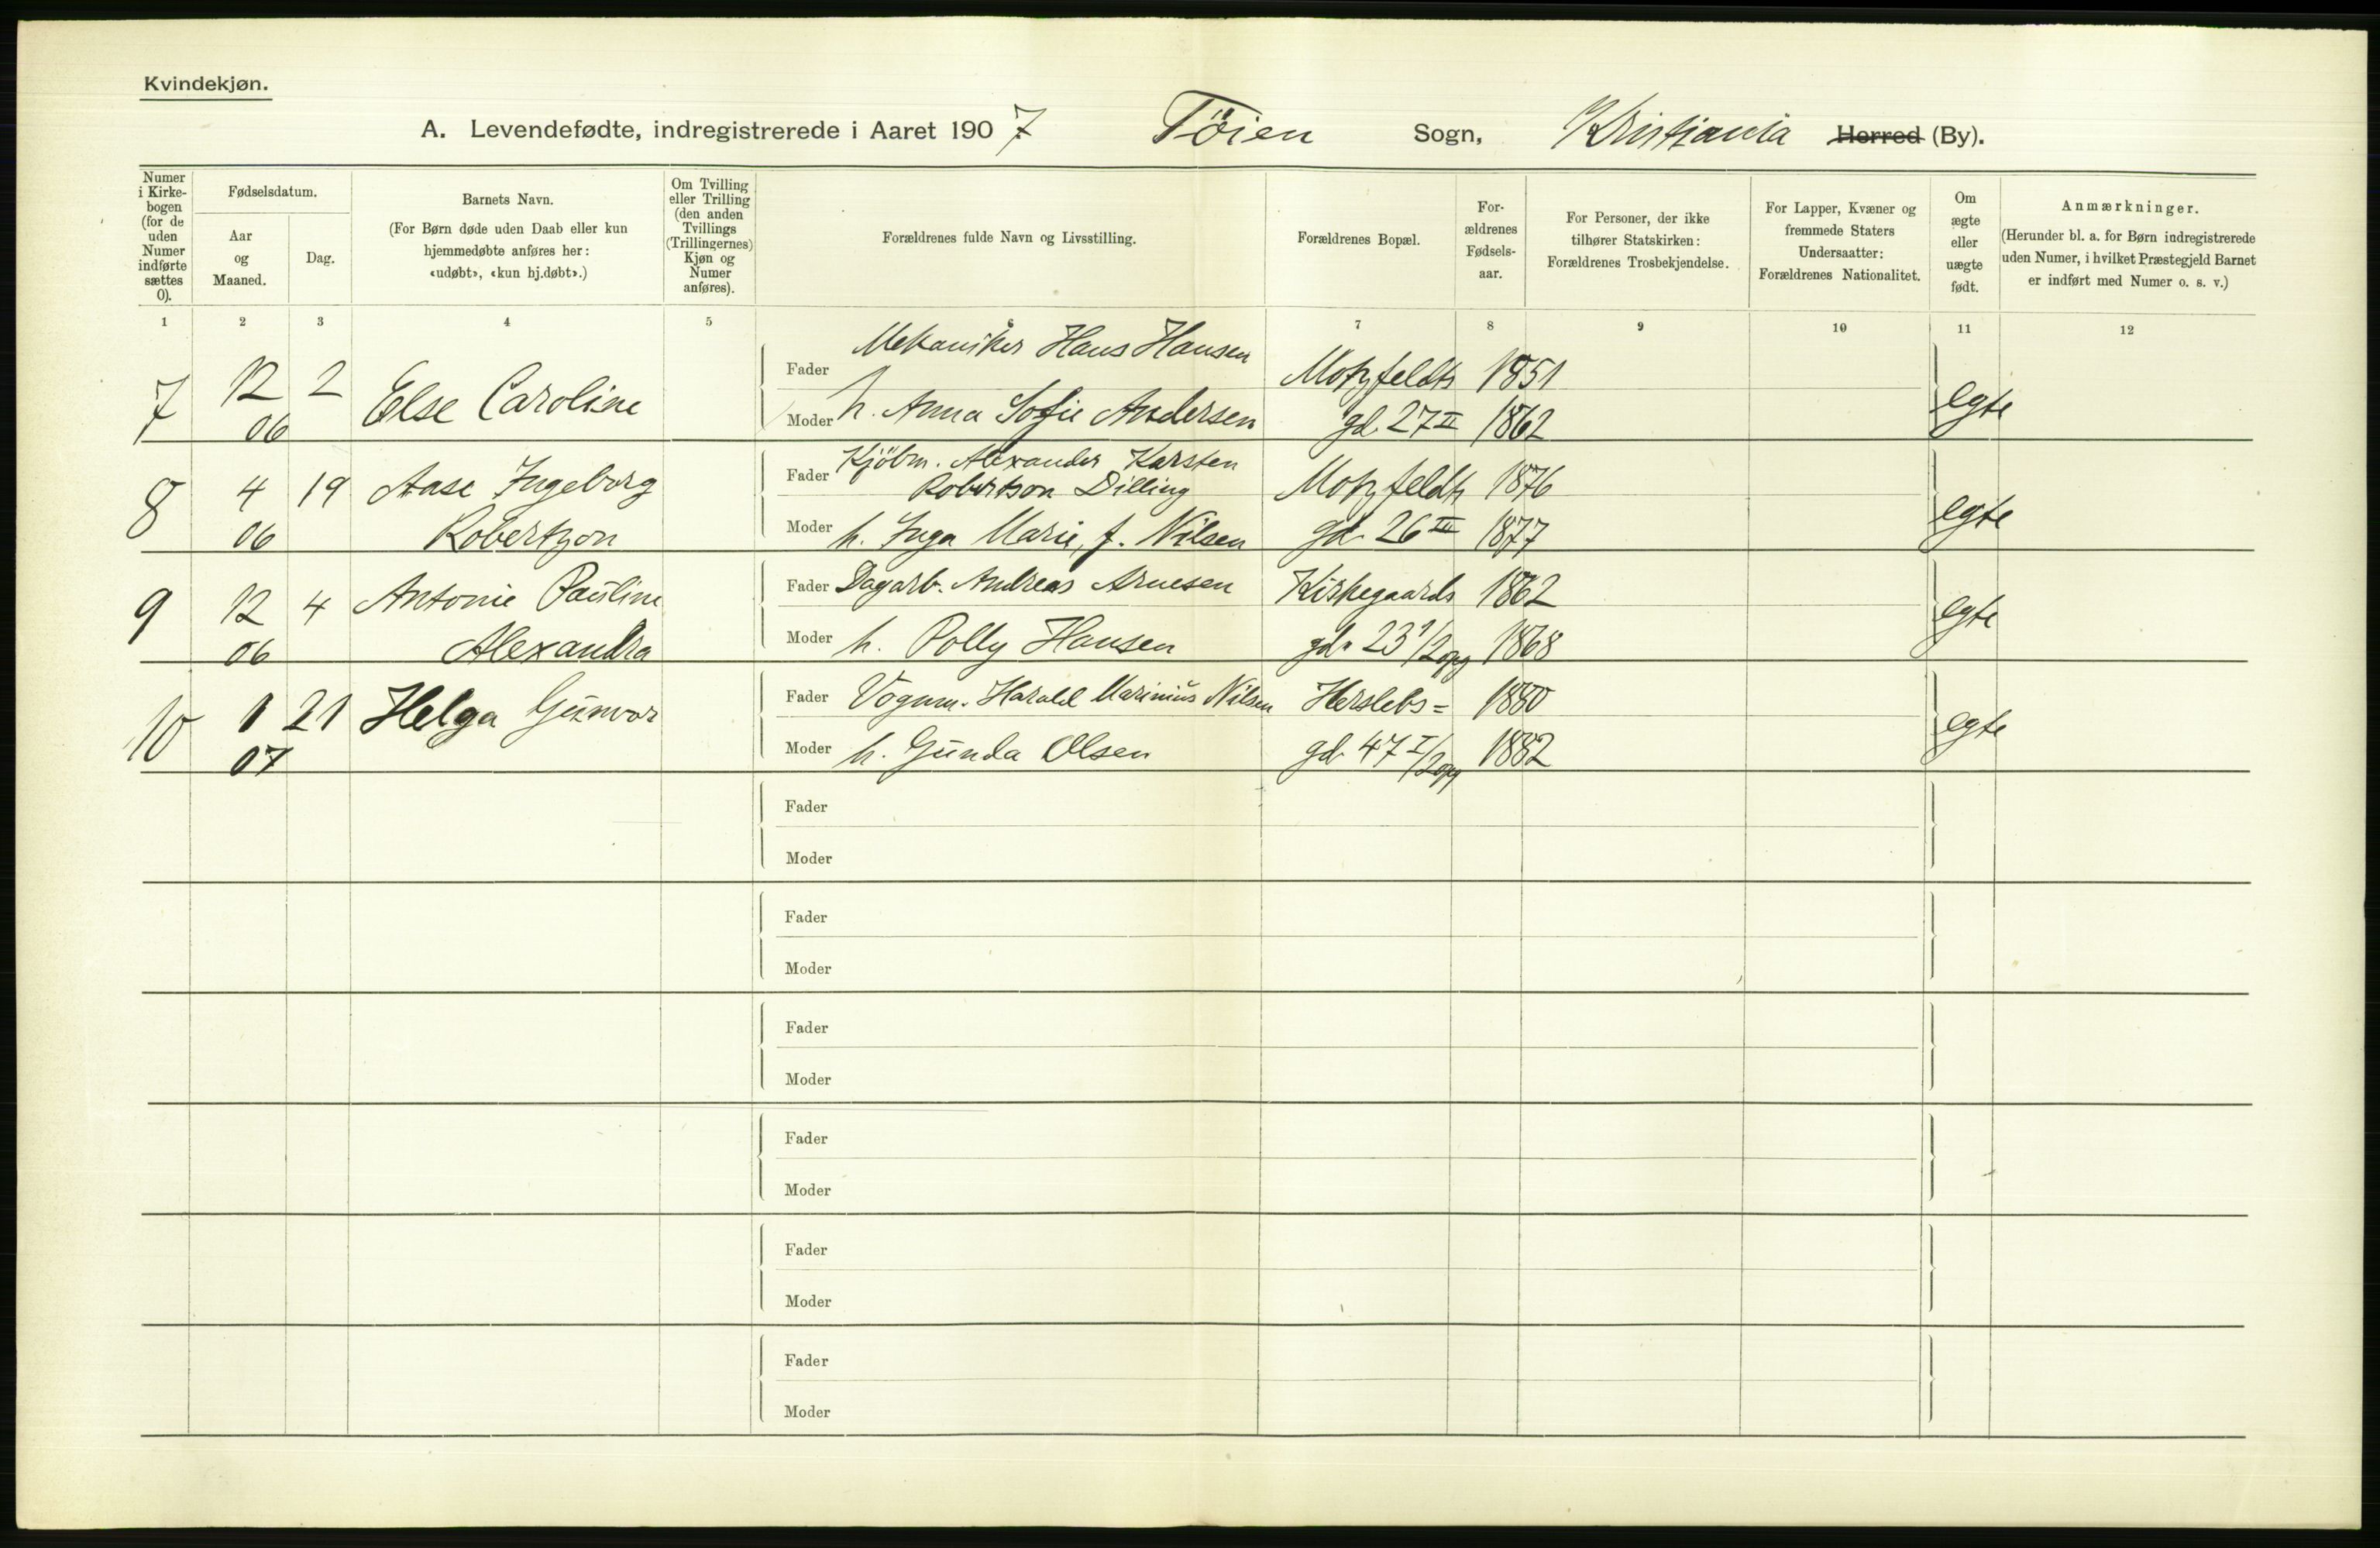 Kvindekjøn.
A. Levendefødte, indregistrerede i Aaret 1907 Töien Sogn, Kristiania Herred (By).
Numer i Kirkebogen (for de uden Numer indførte sættes 0).
Fødselsdatum.
Aar og Maaned.
Dag.
Barnets Navn.
(For Børn døde uden Daab eller kun hjemmedøbte anføres her: «udøbt», «kun hj.døbt».)
Om Tvilling eller Trilling (den anden Tvillings (Trillingernes) Kjøn og Numer anføres).
Forældrenes fulde Navn og Livsstilling.
Forældrenes Bopæl.
Forældrenes Fødselsaar.
For Personer, der ikke tilhører Statskirken: Forældrenes Trosbekjendelse.
For Lapper, Kvæner og fremmede Staters Undersaatter: Forældrenes Nationalitet.
Om ægte eller uægte født.
Anmærkninger.
(Herunder bl. a. for Børn indregistrerede uden Numer, i hvilket Præstegjeld Barnet er indført med Numer o. s. v.)
1 2 3 4 5 6 7 8 9 10 11 12
7 12 2 Else Caroline Fader Mekaniker Hans Hansen Motzfeldts 1851 egte
06 Moder h. Anna Sofie Andersen gd. 27 II 1862
8 4 19 Aase Ingeborg Fader Kjöbm. Alexander Karsten
Robertson Dilling Motzfeldts 1876 egte
06 Robertzon Moder h. Inga Marie, f. Nilsen gd. 26 III 1877
9 12 4 Antonie Pauline Fader Dagarb. Andreas Arnesen Kirkegaards 1862 egte
06 Alexandra Moder h. Polly Hansen gd. 23 1/2opg 1868
10 1 21 Helga Gunvor Fader Vognm. Harald Marinius Nilsen Herslebs= 1880 egte
07 Moder h. Gunda Olsen gd. 47 I/2opg 1882
Fader
Moder
Fader
Moder
Fader
Moder
Fader
Moder
Fader
Moder
Fader
Moder